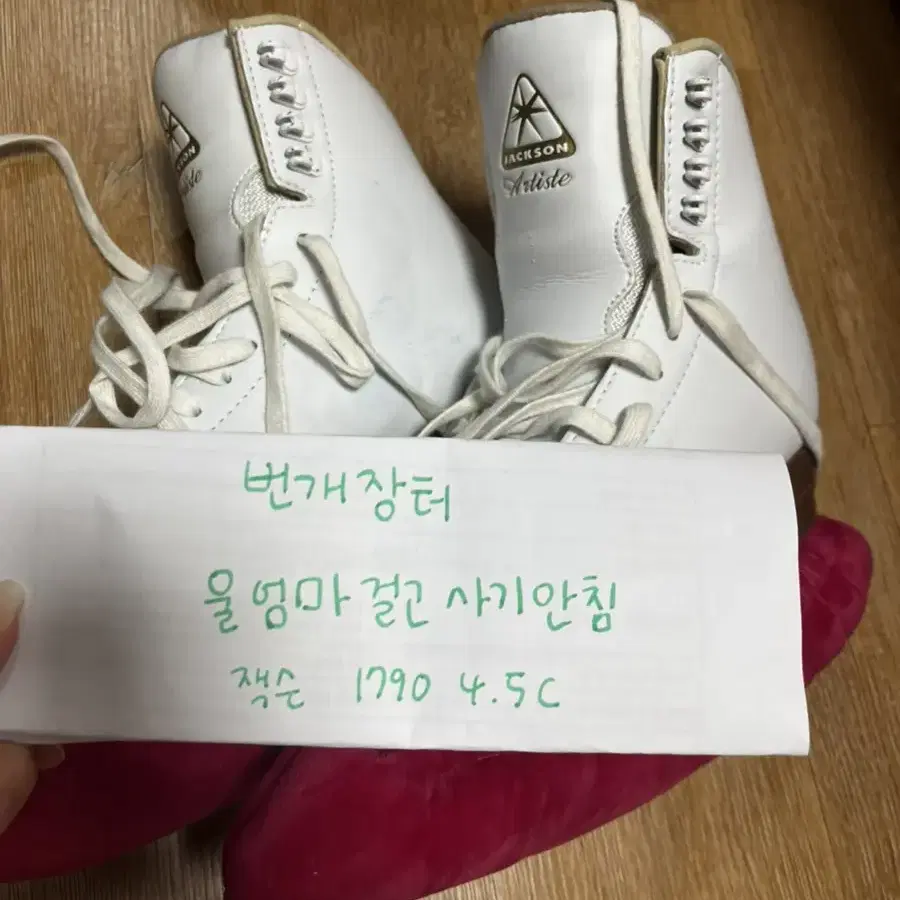 JACKSON
Artiste
JACKSON
Artiste
번개장터
울 엄마 걸고 사기안침
잭슨 1790 4.5C